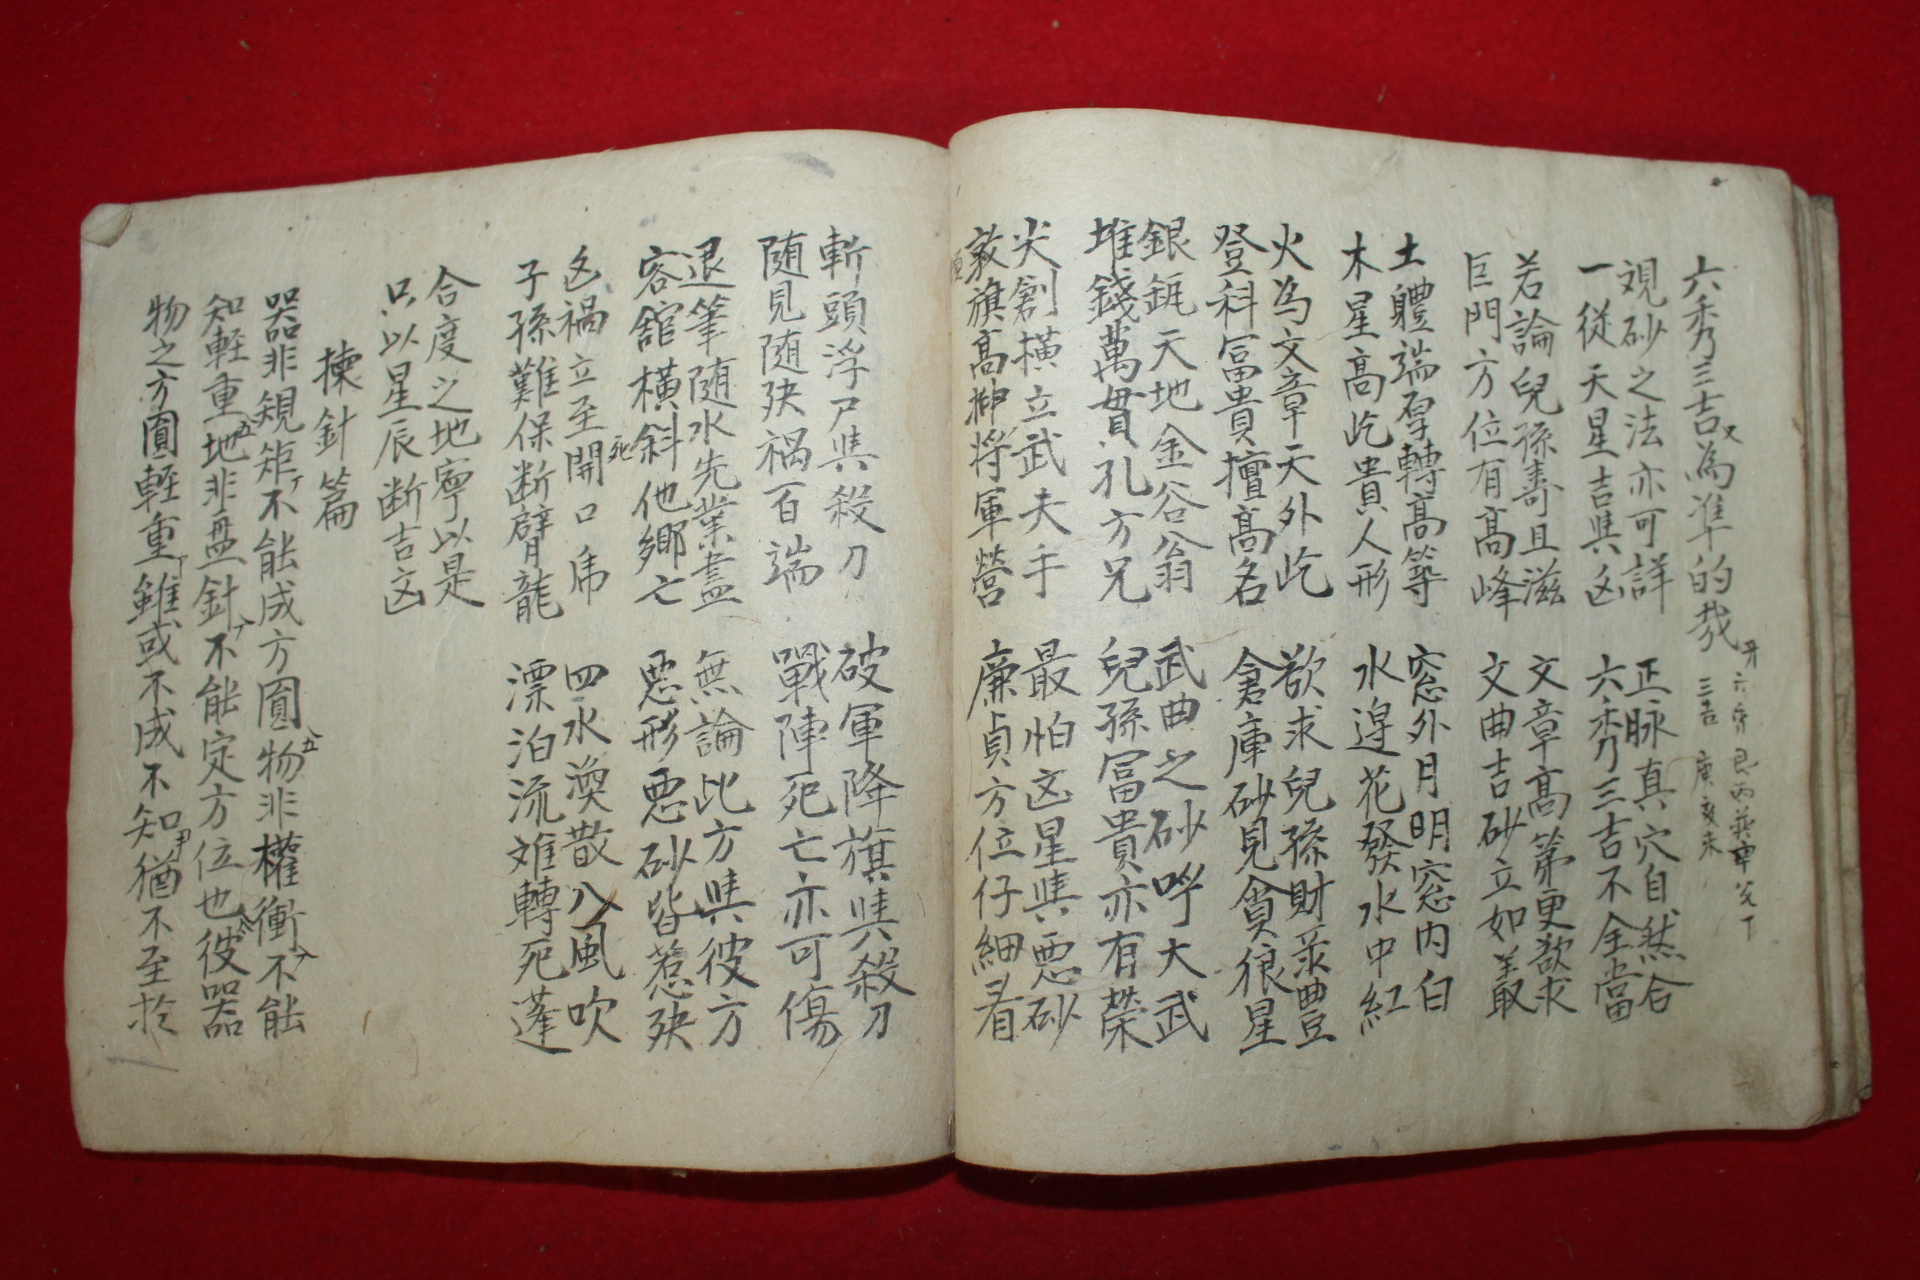 六秀三吉又為准的哉
六秀 艮丙巽辛兌丁
三吉 庚亥未
覌砂之法亦可詳 正脉真穴自然合
一從天星吉與凶 六秀三吉不全當
若論兒孫壽且滋 文章高第更欲求
巨門方位有高峰 文曲吉砂立如義
土體端厚轉高等 窓外月明窓内白
木星高屹貴人形 水邉花發水中紅
火為文章天外屹 欲求兒孫財豊
登科冨貴擅高名 倉庫砂見貪狼星
銀瓶天地金谷翁 武曲之砂呼大武
堆錢萬貫孔方兄 兒孫冨貴亦有榮
尖創横立武夫手 最怕凶星與悪砂
敦旗高掛將軍營 廉貞方位仔細看
斬頭浮尸與殺刀 破軍降旗與殺刀
随見随殃禍百端 戰陣死亡亦可傷
退筆随水先業盡 無論比方與彼方
客舘横斜他鄉亡 悪形悪砂皆惹殃
死
凶禍立至開口乕 四水渙散八風吹
子孫難保断臂龍 漂泊流难轉死蓬
合度之地寧以是
只以星辰断吉凶
揀針篇
器非規矩不能成方圓物非權衡不能
知軽重地非盤針不能定方位也彼器
物之方圓軽重雖或不成不知猶不至於